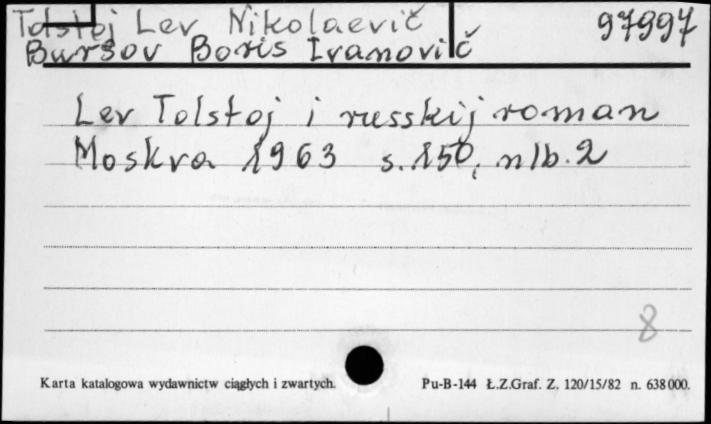 Tolstoj Lev Nikolaevič 97997
Bursov Boris Ivanovič
Lev Tolstoj i russkij roman
Moskva 1963 s. 150, nlb. 2
8
Karta katalogowa wydawnictw ciągłych i zwartych. Pu-B-144 Ł.Z.Graf. Z. 120/15/82 n. 638000.